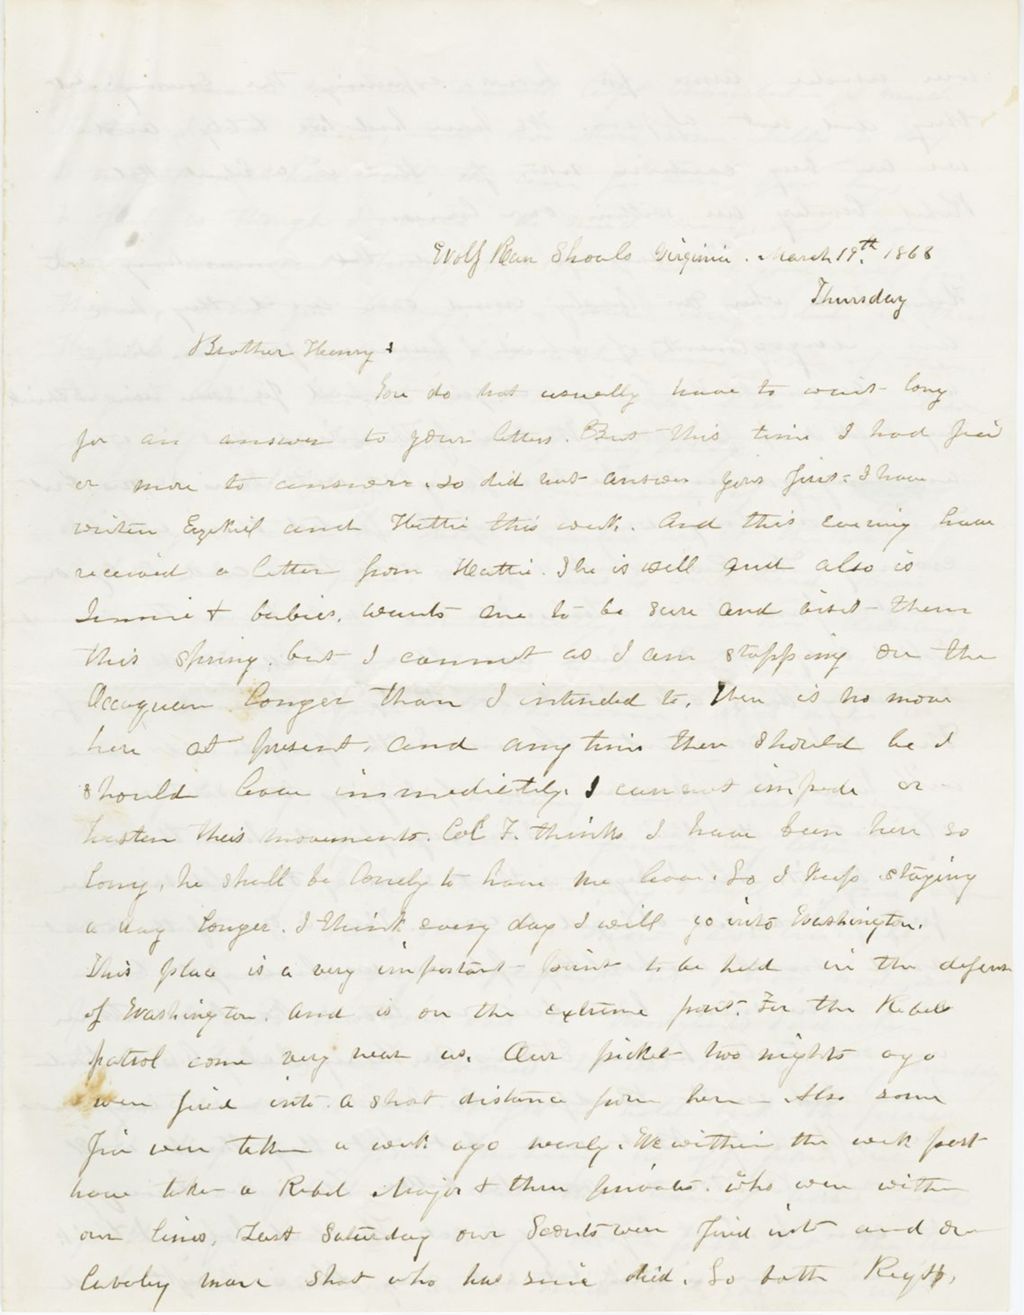 Wolf Run Shoals Virginia. March 19th. 1863
Thursday
Brother Henry:
You do not usually have to wait long
for an answer to your letters. But this time I had five
or more to answer. so did not answer yours first. I have
written Ezekiel and Hattie this week. And this evening have
received a letter from Hattie. She is well and also is
Jennie & babies. wants me to be sure and visit them
this spring. but I cannot as I am stopping on the
Occoquan longer than I intended to. There is no move
here at present, and any time there should be I
should leave immedietely. I cannot impede or
hasten their movements. Col F. thinks I have been here so
long, he shall be lonely to have me leave. So I keep staying
a day longer. I think every day I will go into Washington.
This place is a very important point to be held in the defense
of Washington. and is on the extreme post. For the Rebel
patrol come very near us. Our picket two nights ago
were fired into a short distance from here - Also some
five were taken a week ago nearly. We within the week past
have taken a Rebel Major & three privates. who were within
our lines. Last Saturday our Scouts were fired into and one
Cavelry man shot who has since died. So both Regts,